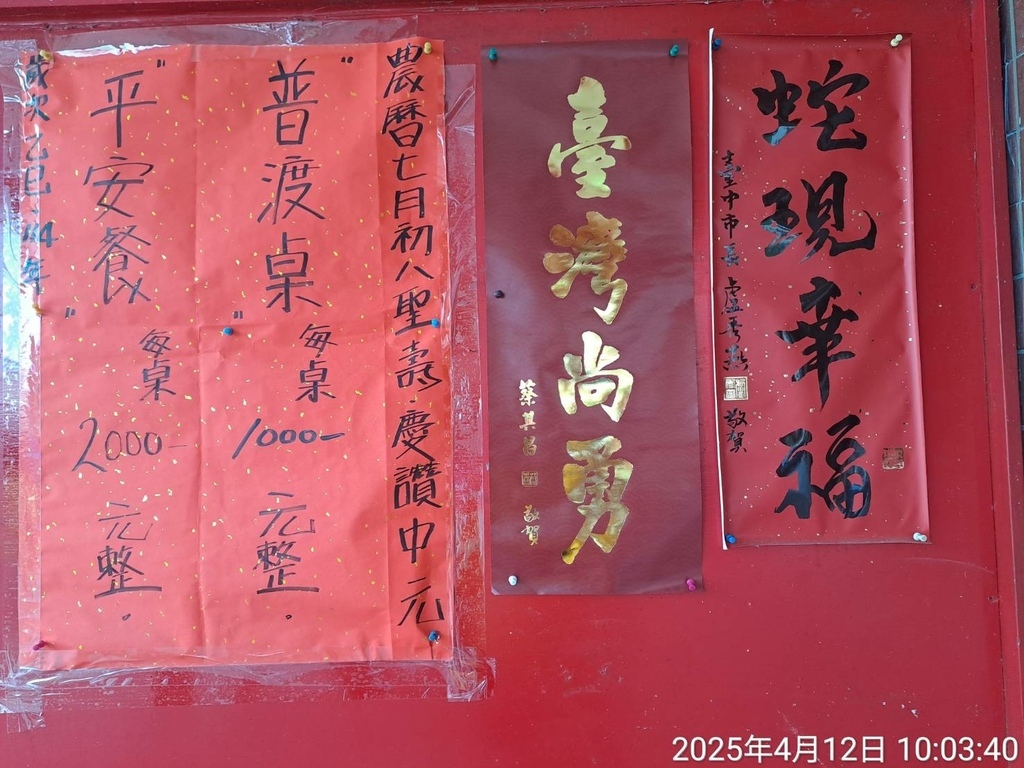 農曆七月初八聖壽·慶讚中元
"普渡桌"
每桌
1000-
元整。
"平安餐"
每桌
2000-
元整。
歲次乙巳·114年
臺灣尚勇
蔡其昌 敬賀
蛇現華福
臺中市長 盧秀燕 敬賀
2025年4月12日 10:03:40